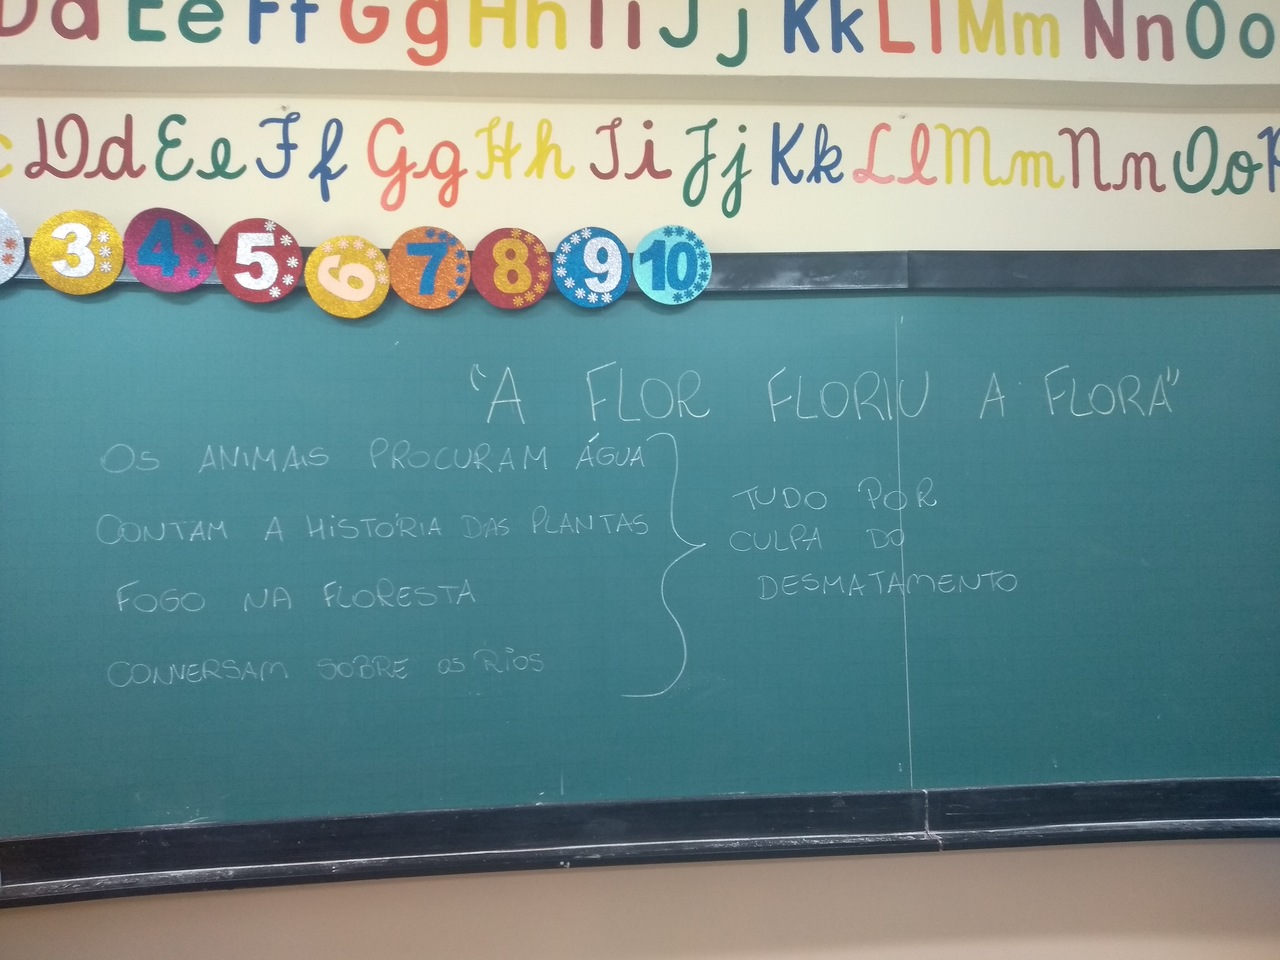 Dd Ee Ff Gg Hh Ii Jj Kk Ll Mm Nn Oo
c Dd Ee Ff Gg Hh Ii Jj Kk Ll Mm Nn Oo P
3 4 5 6 7 8 9 10
"A FLOR FLORIU A FLORA"
OS ANIMAIS PROCURAM ÁGUA
CONTAM A HISTÓRIA DAS PLANTAS
FOGO NA FLORESTA
CONVERSAM SOBRE OS RIOS
TUDO POR
CULPA DO
DESMATAMENTO